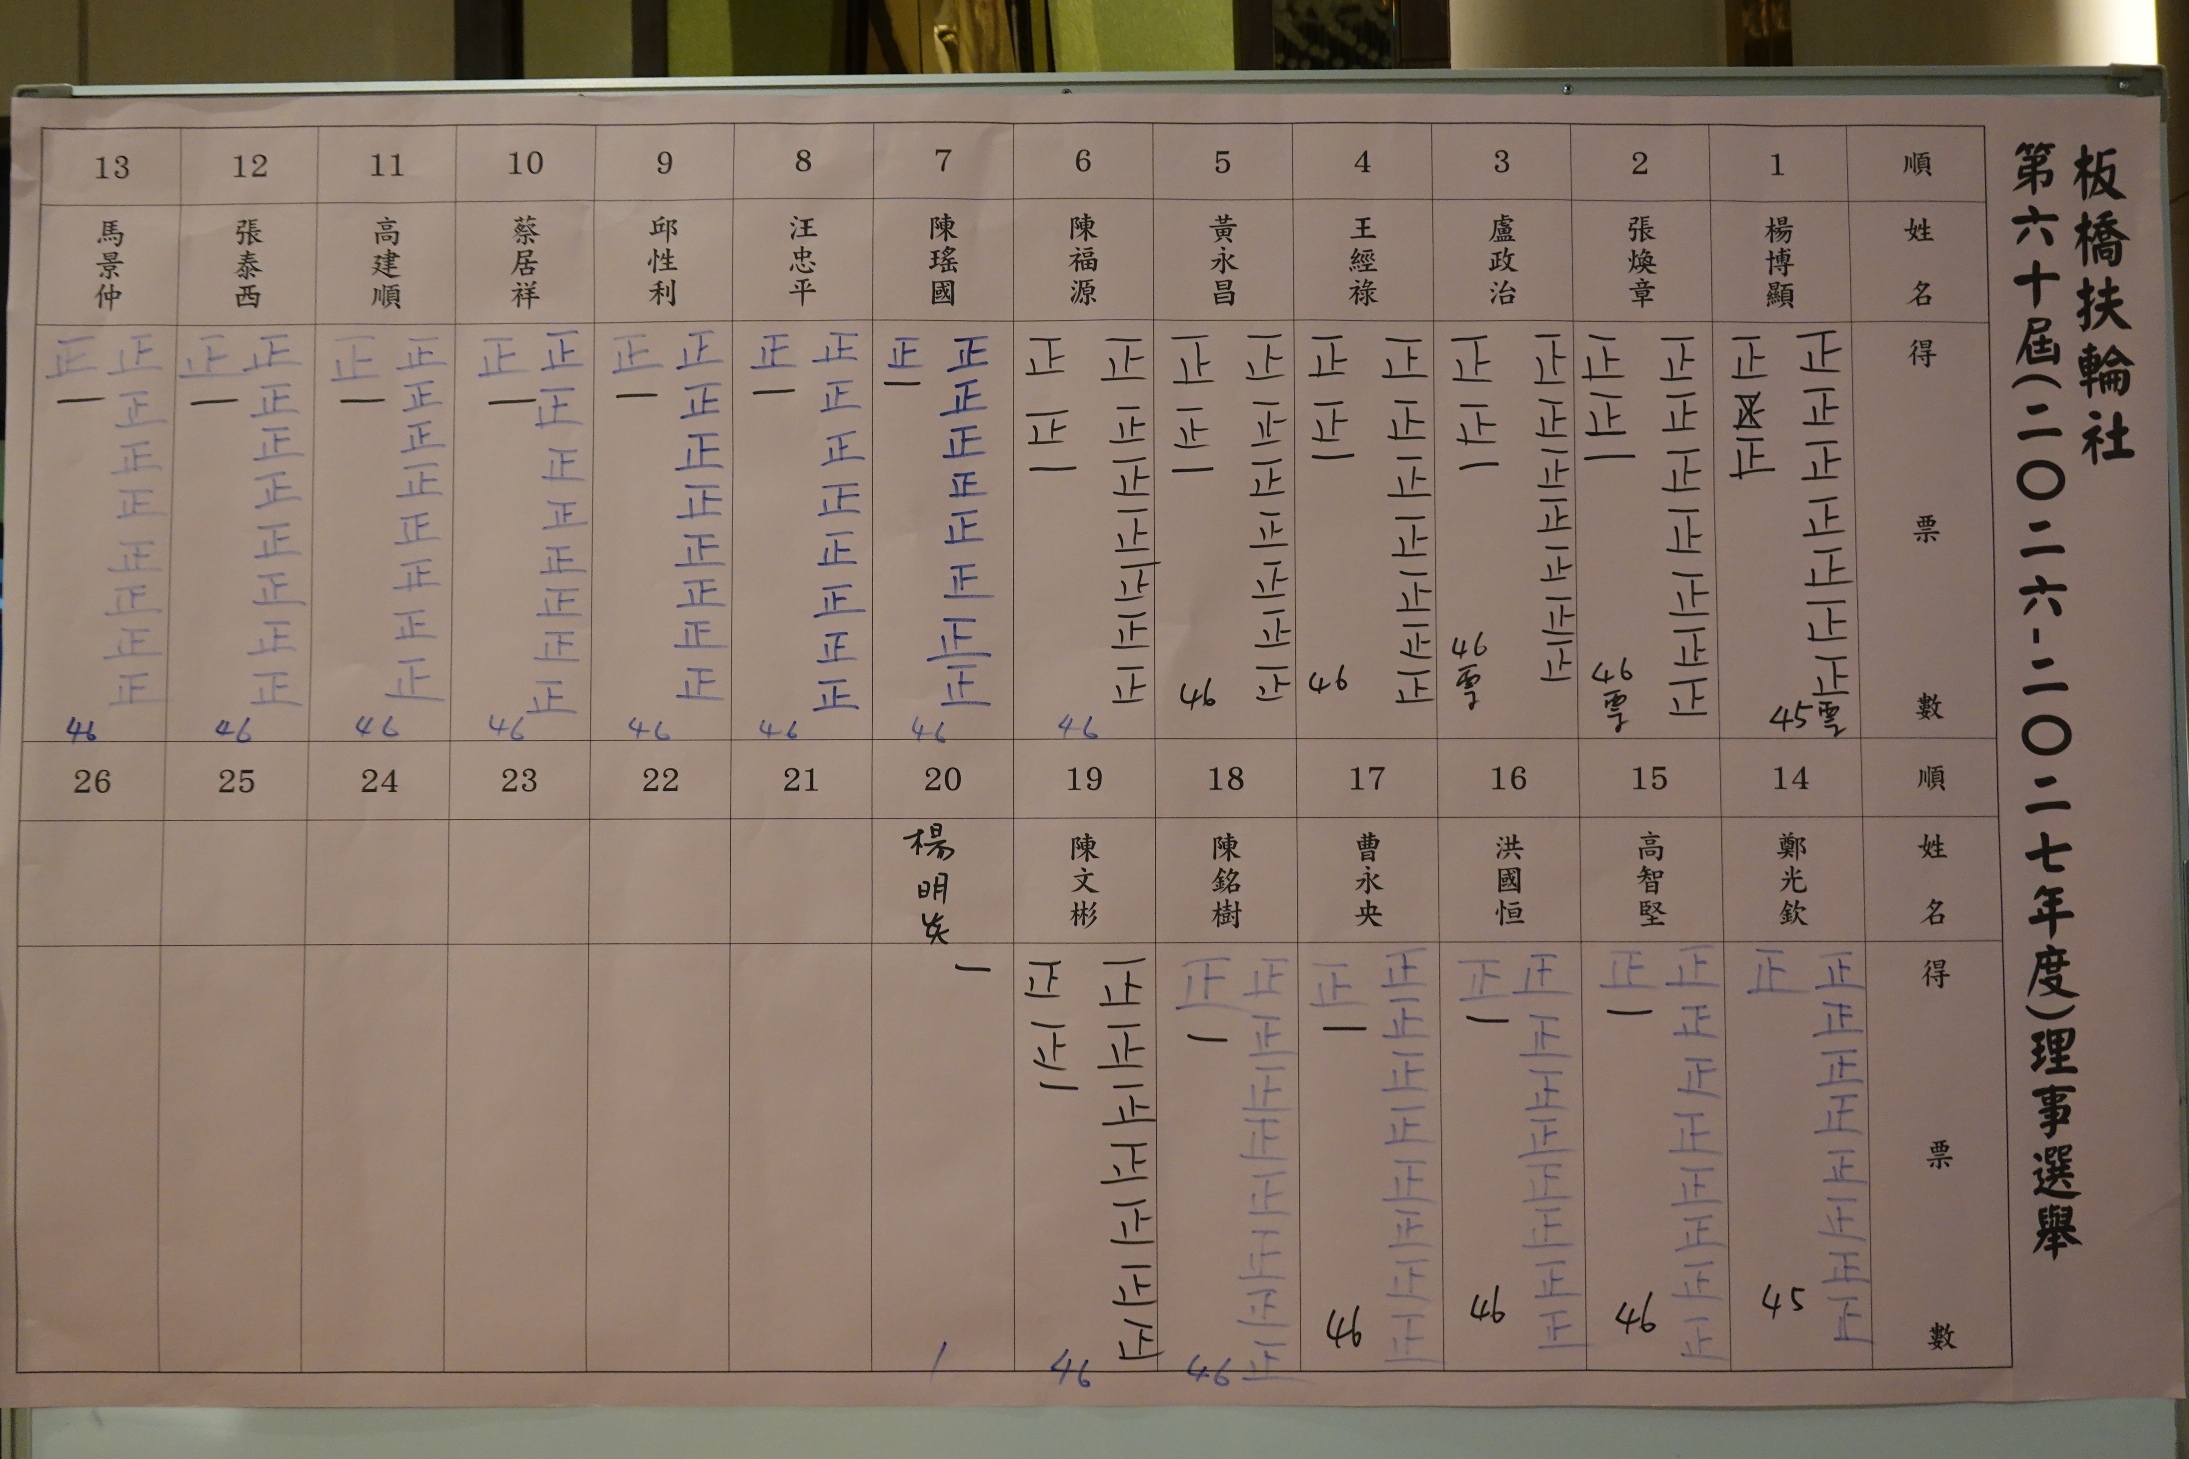 板橋扶輪社
第六十屆(二〇二六-二〇二七年度)理事選舉
順 1 2 3 4 5 6 7 8 9 10 11 12 13
姓名 楊博顯 張煥章 盧政治 王經祿 黃永昌 陳福源 陳瑤國 汪忠平 邱性利 蔡居祥 高建順 張泰西 馬景仲
得票數
正正正正正正正 正正 45
正正正正正正正 正正一 46
正正正正正正正 正正一 46
正正正正正正正 正正一 46
正正正正正正正 正正一 46
正正正正正正正 正正一 46
正正正正正正正正 正一 46
正正正正正正正正 正一 46
正正正正正正正正 正一 46
正正正正正正正正 正一 46
正正正正正正正正 正一 46
正正正正正正正正 正一 46
正正正正正正正正 正一 46
順 14 15 16 17 18 19 20 21 22 23 24 25 26
姓名 鄭光欽 高智堅 洪國恒 曹永央 陳銘樹 陳文彬 楊明炎
得票數
正正正正正正正正 正 45
正正正正正正正正 正一 46
正正正正正正正正 正一 46
正正正正正正正正 正一 46
正正正正正正正正 正一 46
正正正正正正正 正正一 46
一 1